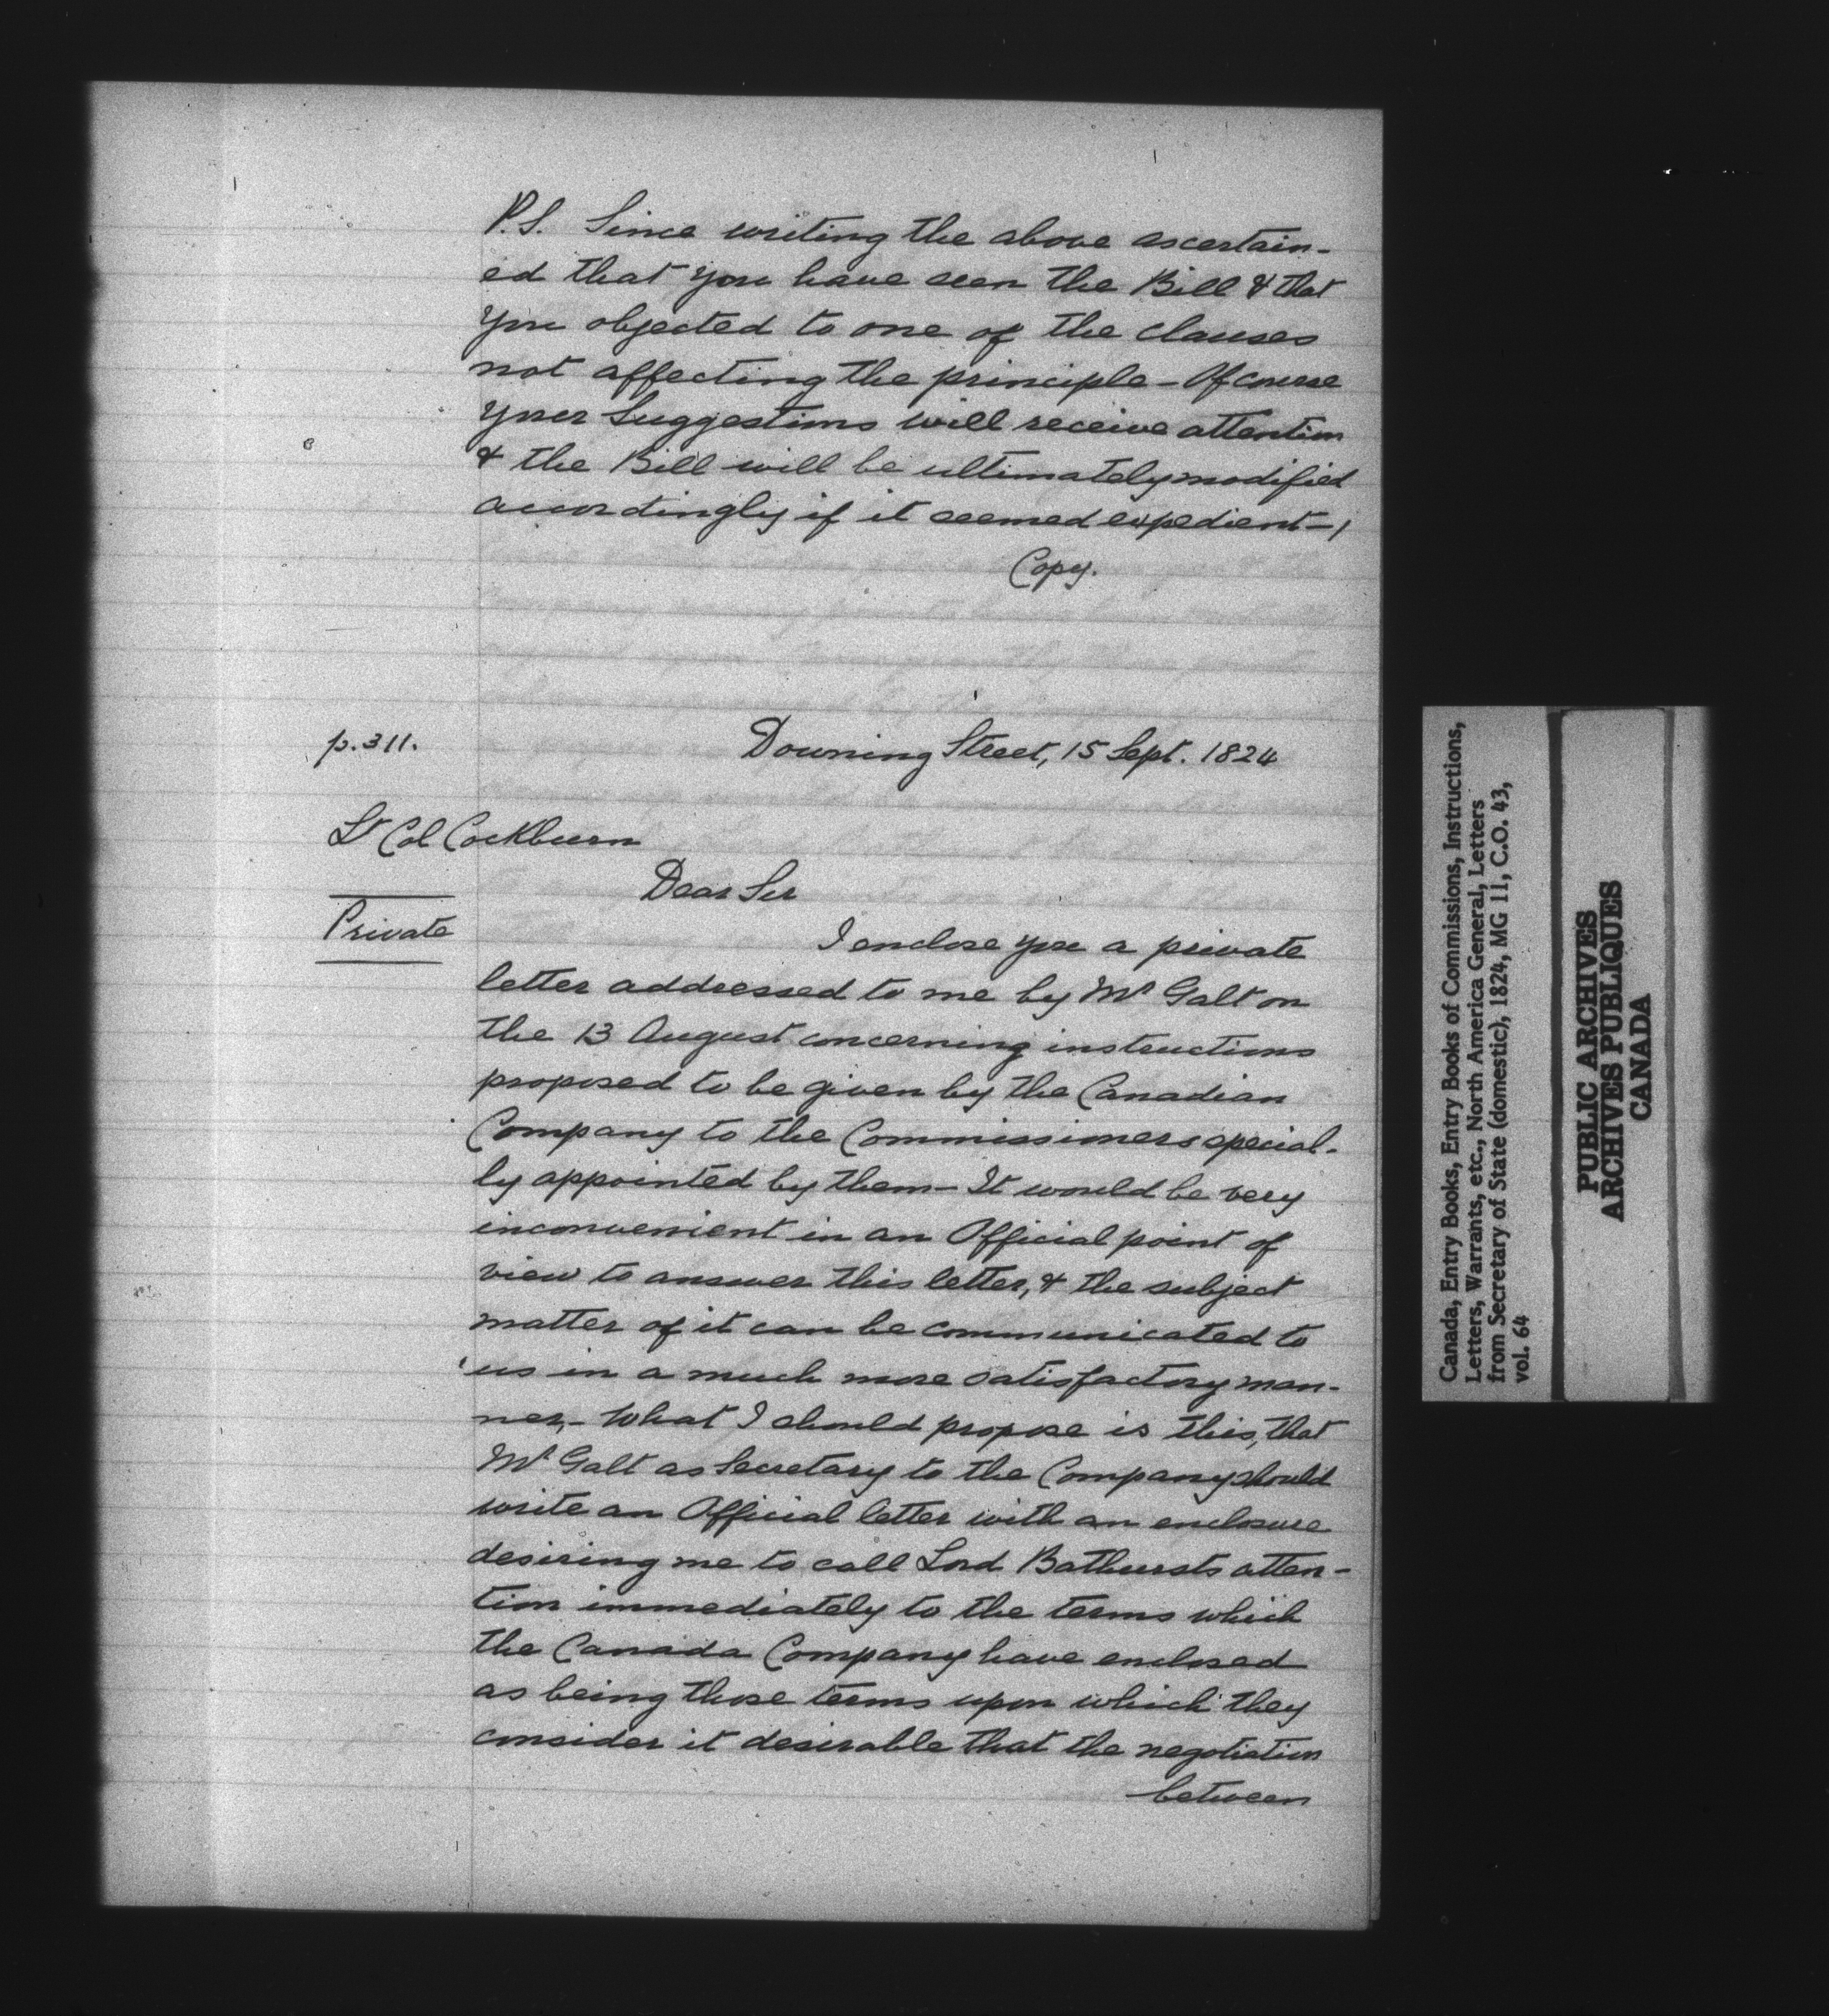 P.S. Since writing the above ascertain-
ed that you have seen the Bill & that
you objected to one of the clauses
not affecting the principle - Of course
your Suggestions will receive attention
& the Bill will be ultimately modified
accordingly if it seemed expedient-,
Copy.
p. 311.
Downing Street, 15 Sept. 1824
Lt Col Cockburn
Dear Sir
Private
I enclose you a private
letter addressed to me by Mr Galt on
the 13 August concerning instructions
proposed to be given by the Canadian
Company to the Commissioners special-
ly appointed by them - It would be very
inconvenient in an Official point of
view to answer this letter, & the subject
matter of it can be communicated to
us in a much more satisfactory man-
ner, - What I should propose is this, that
Mr Galt as Secretary to the Company should
write an Official letter with an enclosure
desiring me to call Lord Bathursts atten-
tion immediately to the terms which
the Canada Company have enclosed
as being those terms upon which they
consider it desirable that the negotiation
between
Canada, Entry Books, Entry Books of Commissions, Instructions,
Letters, Warrants, etc., North America General, Letters
from Secretary of State (domestic), 1824, MG 11, C.O. 43,
vol. 64
PUBLIC ARCHIVES
ARCHIVES PUBLIQUES
CANADA